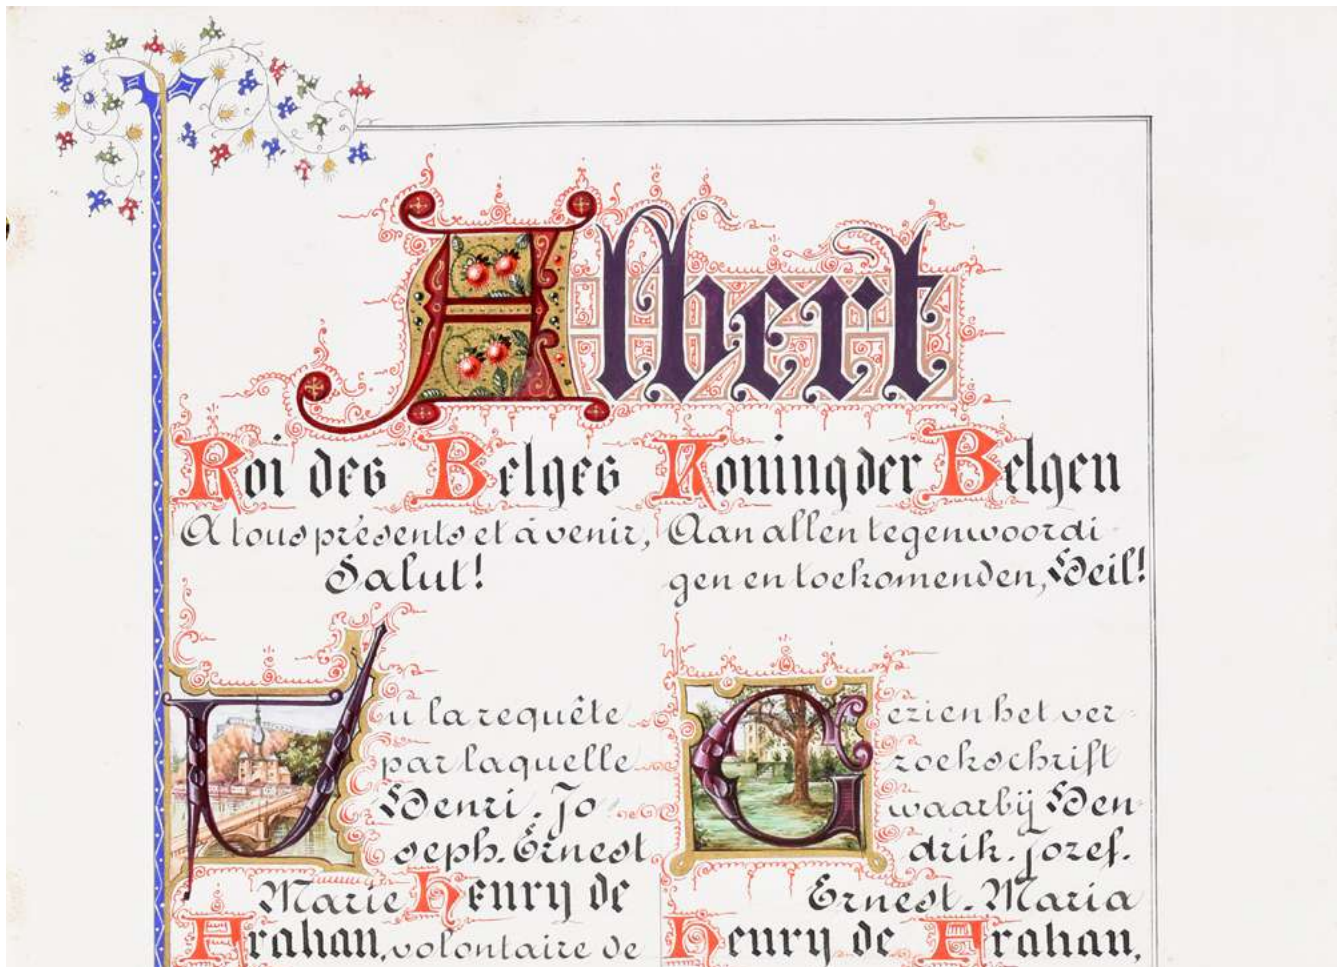 Albert
Roi des Belges
A tous présents et à venir,
Salut!
Vu la requête
par laquelle
Henri. Jo
seph. Ernest
Marie Henry de
Frahan, volontaire de
Koning der Belgen
Aan allen tegenwoordi-
gen en toekomenden, Heil!
Gezien het ver-
zoekschrift
waarbij Hen
drik. Jozef.
Ernest. Maria
Henry de Frahan,